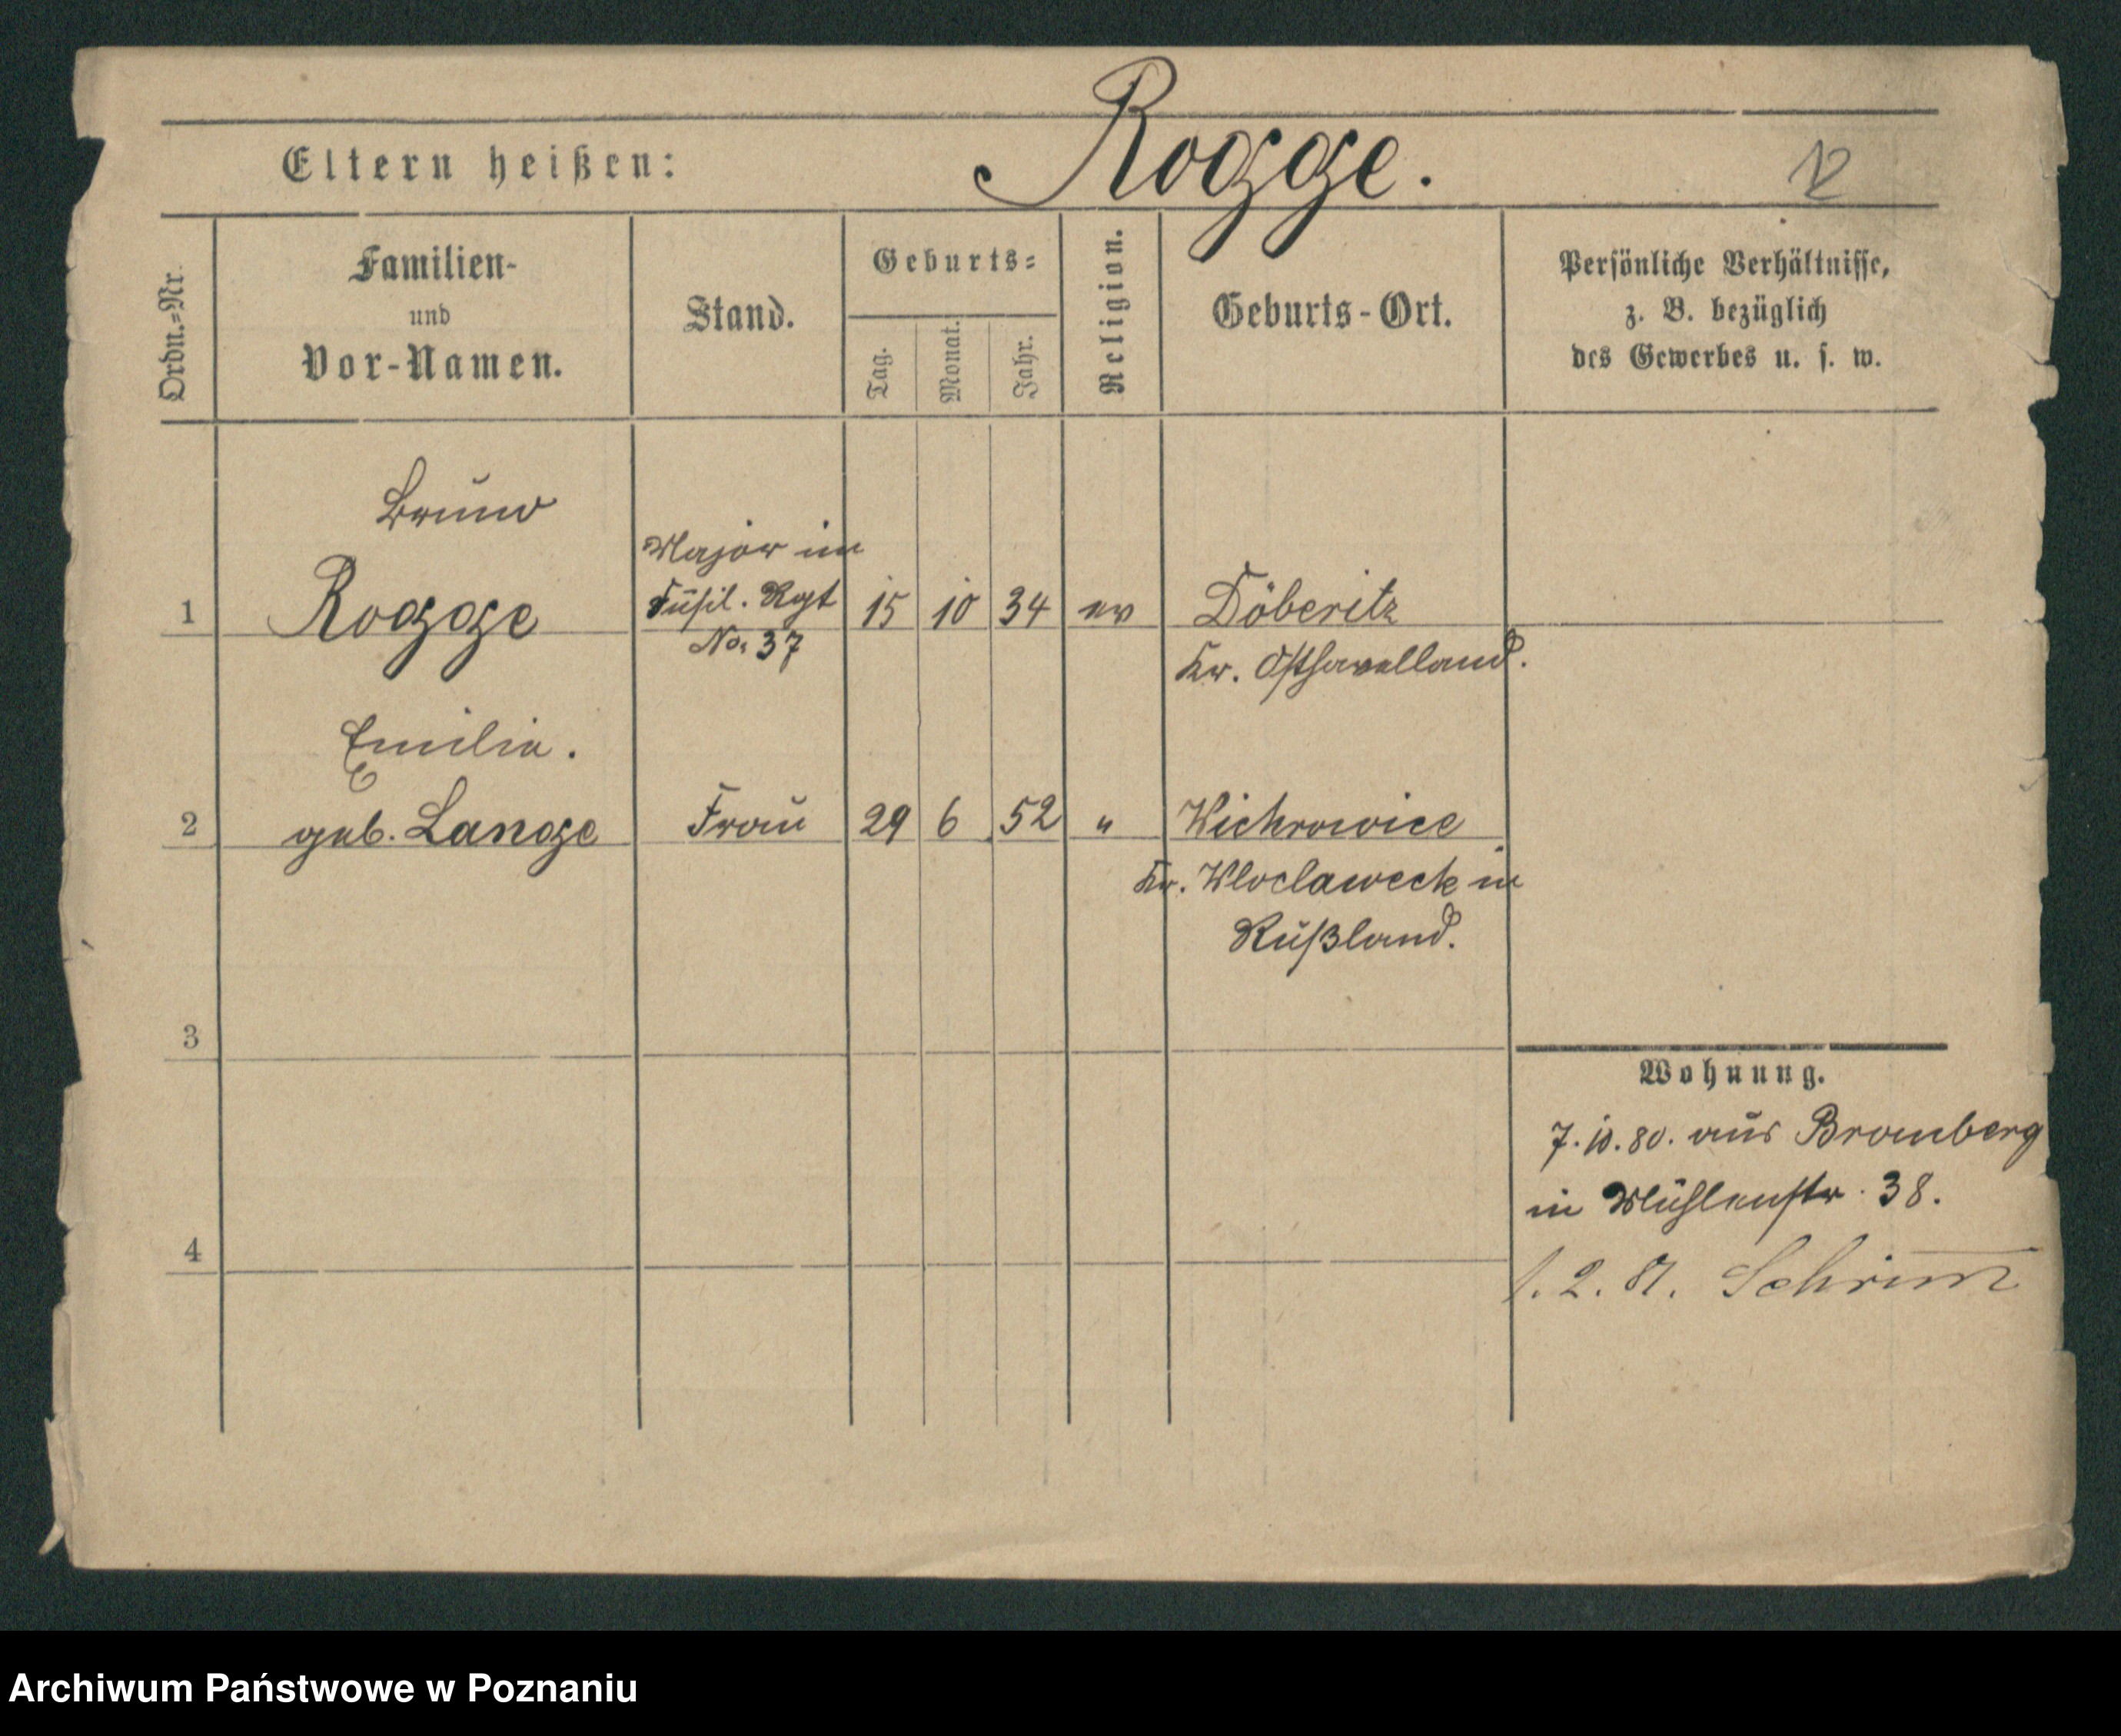 Rogge.
Eltern heißen:
12
Ordn.=Nr.
Familien-
und
Vor-Namen.
Stand.
Geburts=
Tag.
Monat.
Jahr.
Religion.
Geburts-Ort.
Persönliche Verhältnisse,
z. B. bezüglich
des Gewerbes u. s. w.
Bruno
1 Rogge
Major im
Füsil. Rgt
No. 37
15 10 34 ev
Döberitz
Kr. Osthavelland.
Emilie.
2 geb. Lange Frau 29 6 52 " Wichrowice
Kr. Wloclaweck in
Rußland.
3
4
Wohnung.
7. 10. 80. aus Bromberg
in Mühlenstr. 38.
1. 2. 81. Schrimm
Archiwum Państwowe w Poznaniu